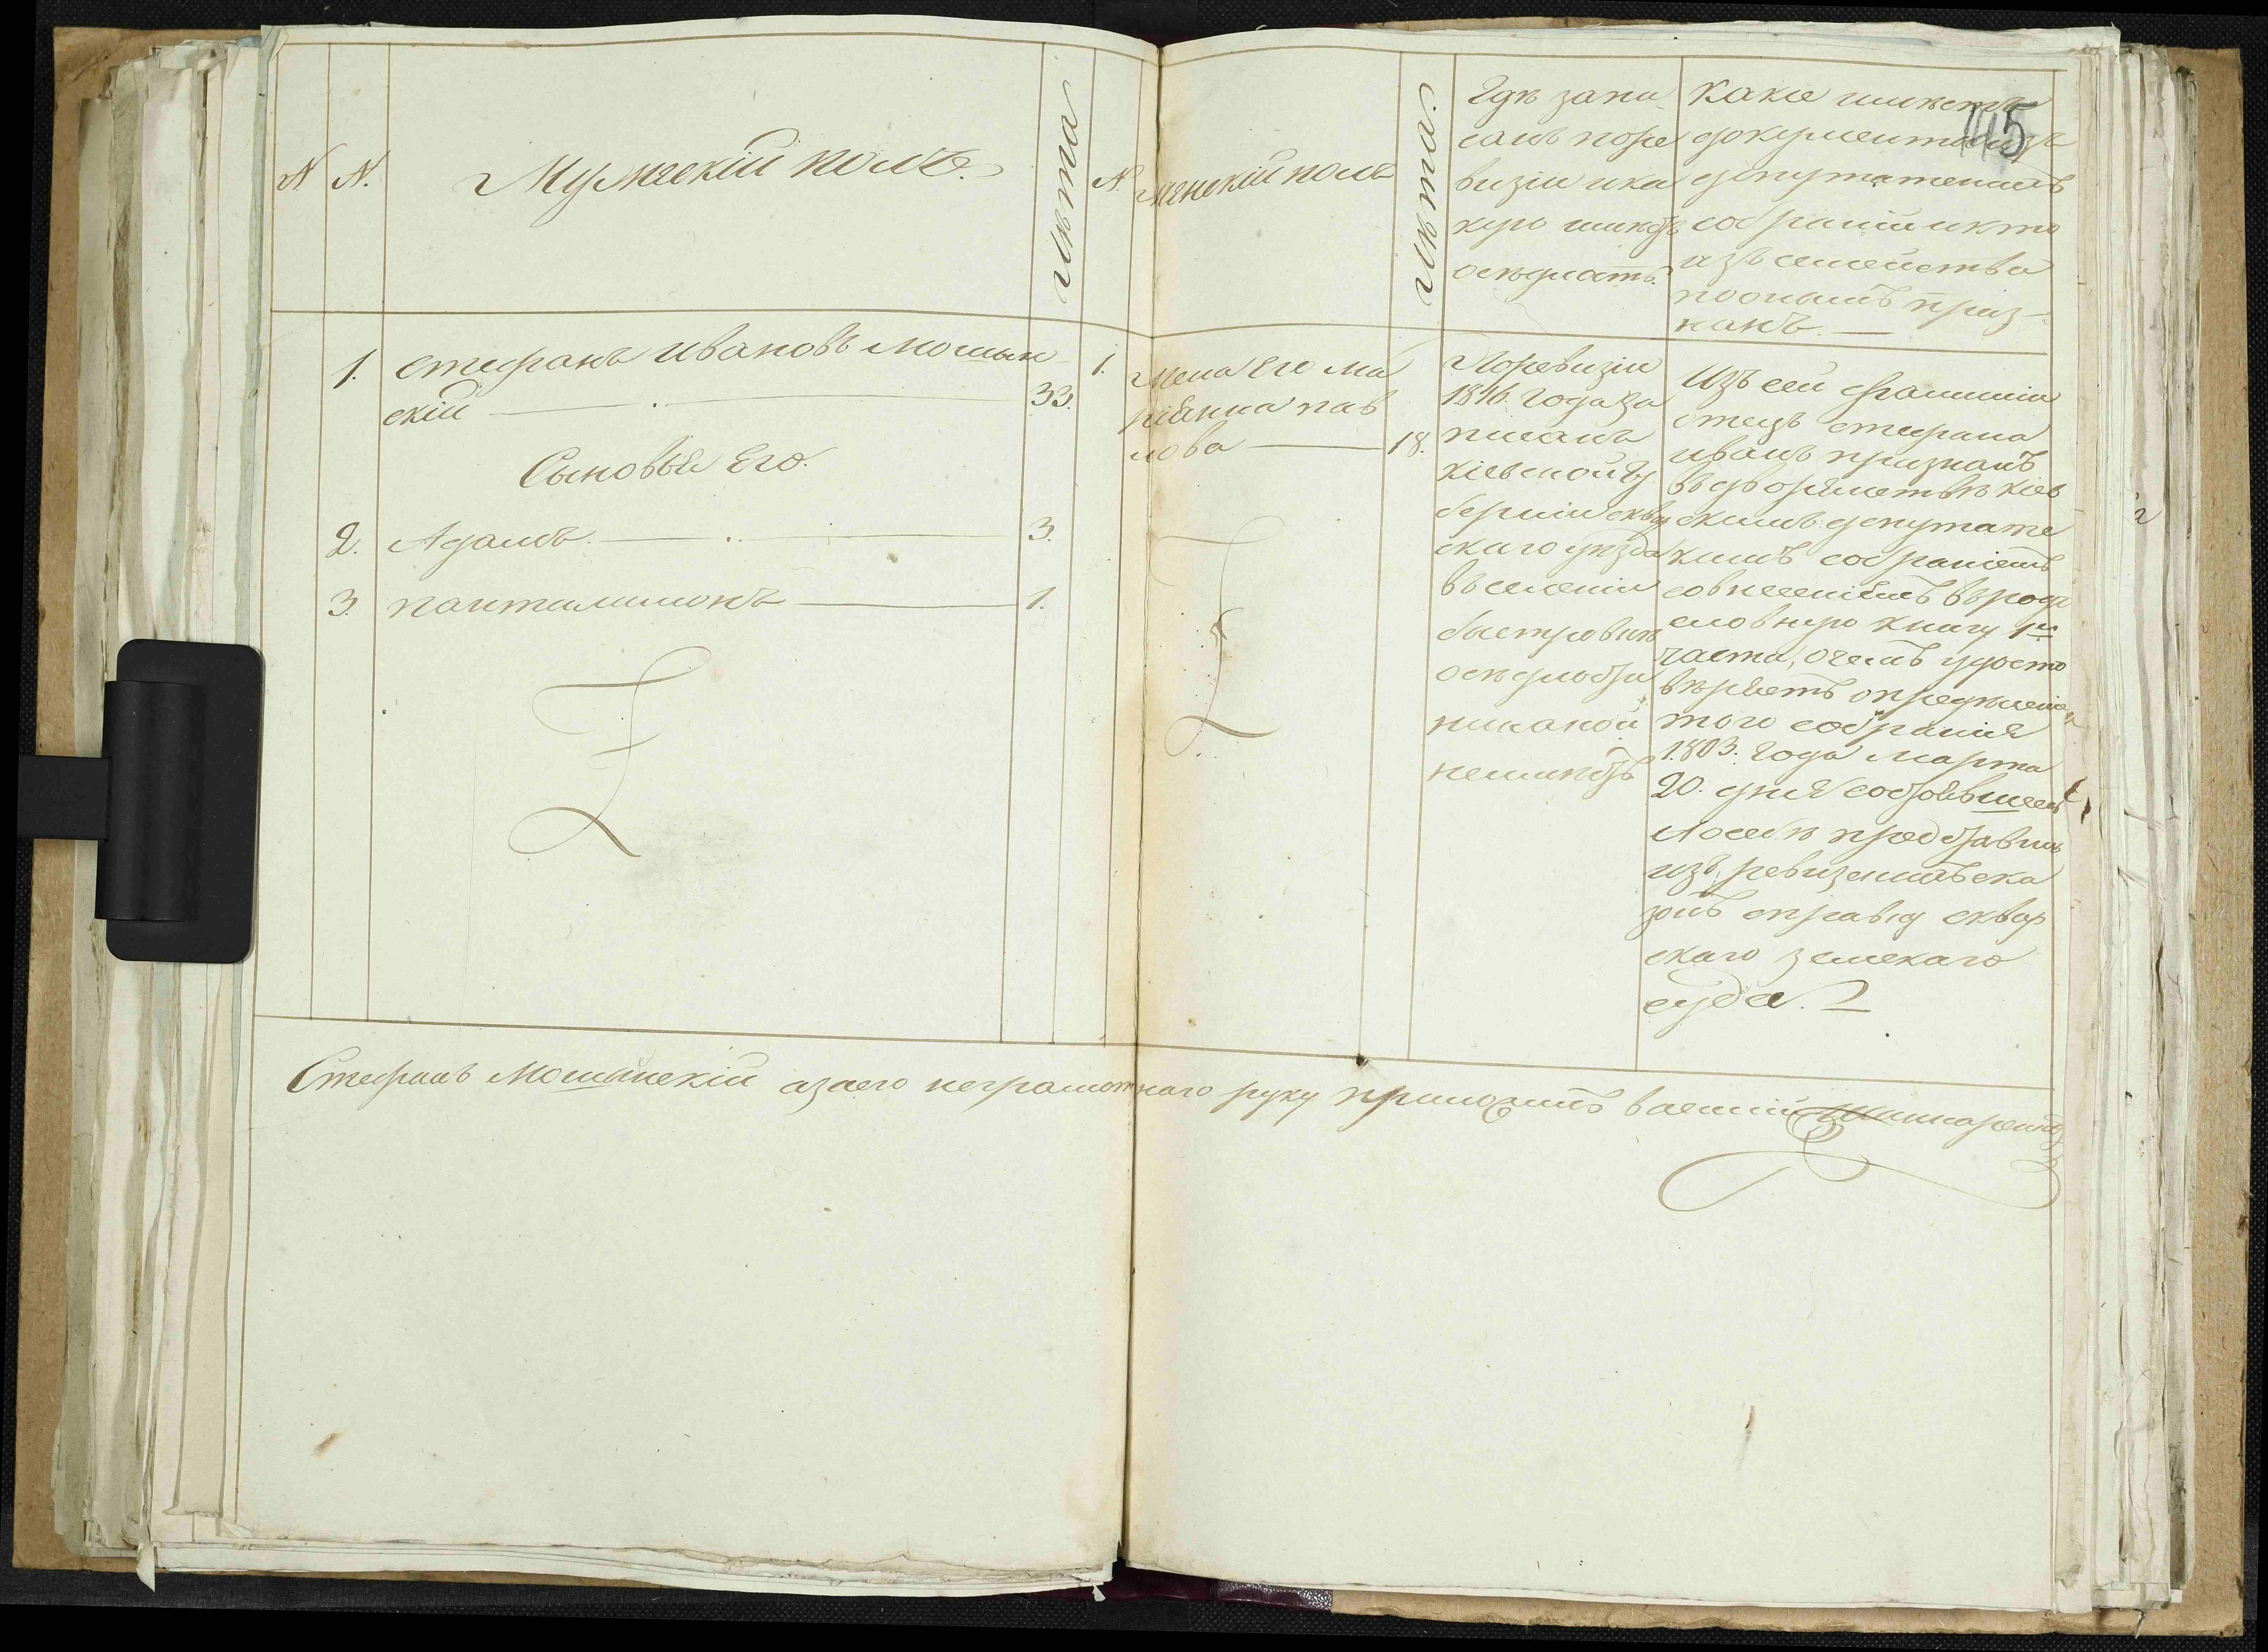 N
N.
Мужескій полъ.
лѣта
N.
женскій полъ
лѣта.
Гдѣ запи
санъ поре
визіи ика
кую имѣетъ
осѣдлость.
Какіе имѣетъ
документы изъ
депутатскихъ
собраній икто
изъ семейства
поонымъ приз-
нанъ.
145
1.
Стефанъ Ивановъ Мошын
скій
33.
Сыновья Его.
2.
Адамъ.
3.
3.
Пантилимонъ
1.
1.
Жена Его Ма
ріянна Пав
лова
18.
Поревизіи
1816. Года За
писанъ
Кіевской Гу
берніи сквир
скаго уѣзда
въ селеніи
быстровкѣ
осѣдлости
никакой
неимѣетъ
Изъ сей Фамиліи
отецъ Стефана
Иванъ признанъ
въ дворянствѣ Кіев
скимъ депутатс
кимъ собраніемъ
совнесеніемъ въ родо
словную Книгу 1й
части, очемъ удосто
вѣряетъ опредѣленіе
того собранія
1803. Года Марта
20. дня состоявшеесь
А осебѣ представилъ
изъ ревизскихъ ска
зокъ справку сквир
скаго Земскаго
суда.
Стефанъ Мошынскій азаего неграмотнаго руку приложилъ